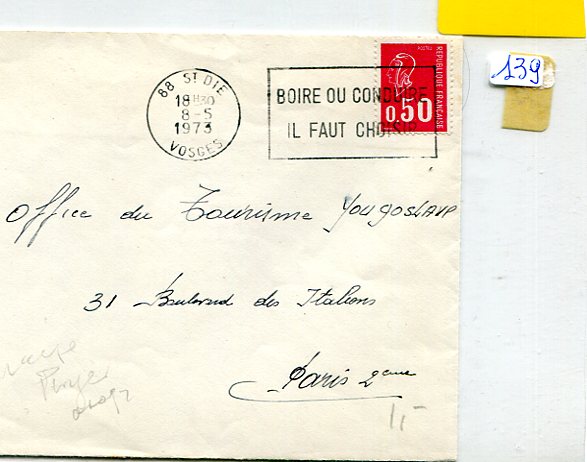 139
88 ST DIE
18H30
8-5
1973
VOSGES
BOIRE OU CONDUIRE
IL FAUT CHOISIR
POSTES
0,50
REPUBLIQUE FRANÇAISE
Office du Tourisme Yougoslave
31 Boulevard des Italiens
Paris 2eme